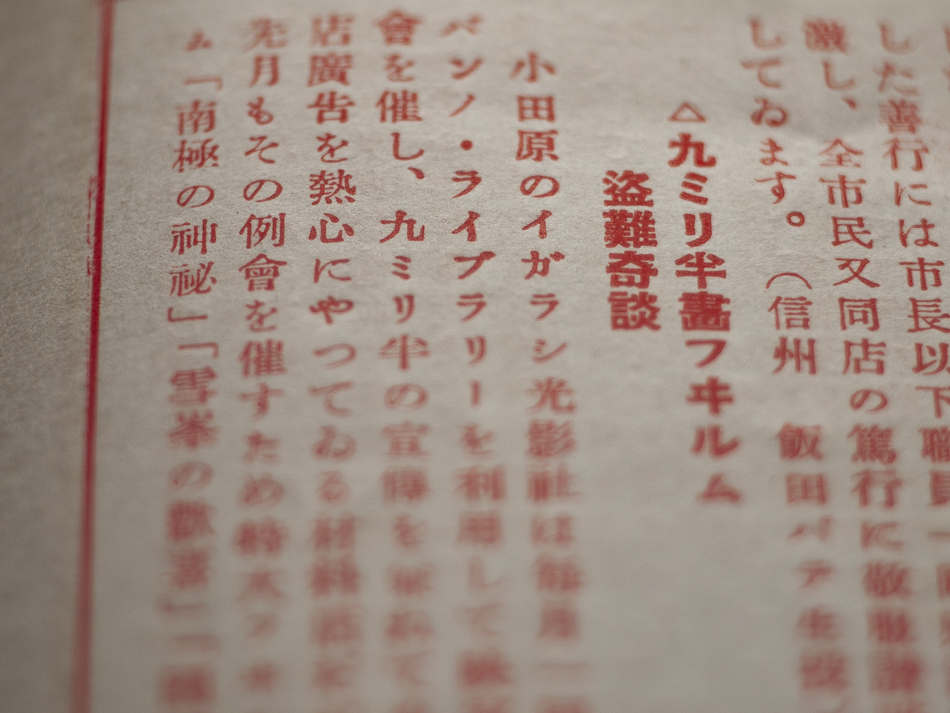 した善行には市長以下職員一同
激し、全市民又同店の篤行に敬服
してゐます。（信州 飯田パテ生投
△九ミリ半畫フヰルム
盜難奇談
小田原のイガラシ光影社は毎月一回
パンノ・ライブラリーを利用して
會を催し、九ミリ半の宣傳を兼ねて
店廣告を熱心にやつてゐる
先月もその例會を催すため特大フヰ
ム「南極の神祕」「雪峯の歡喜」「